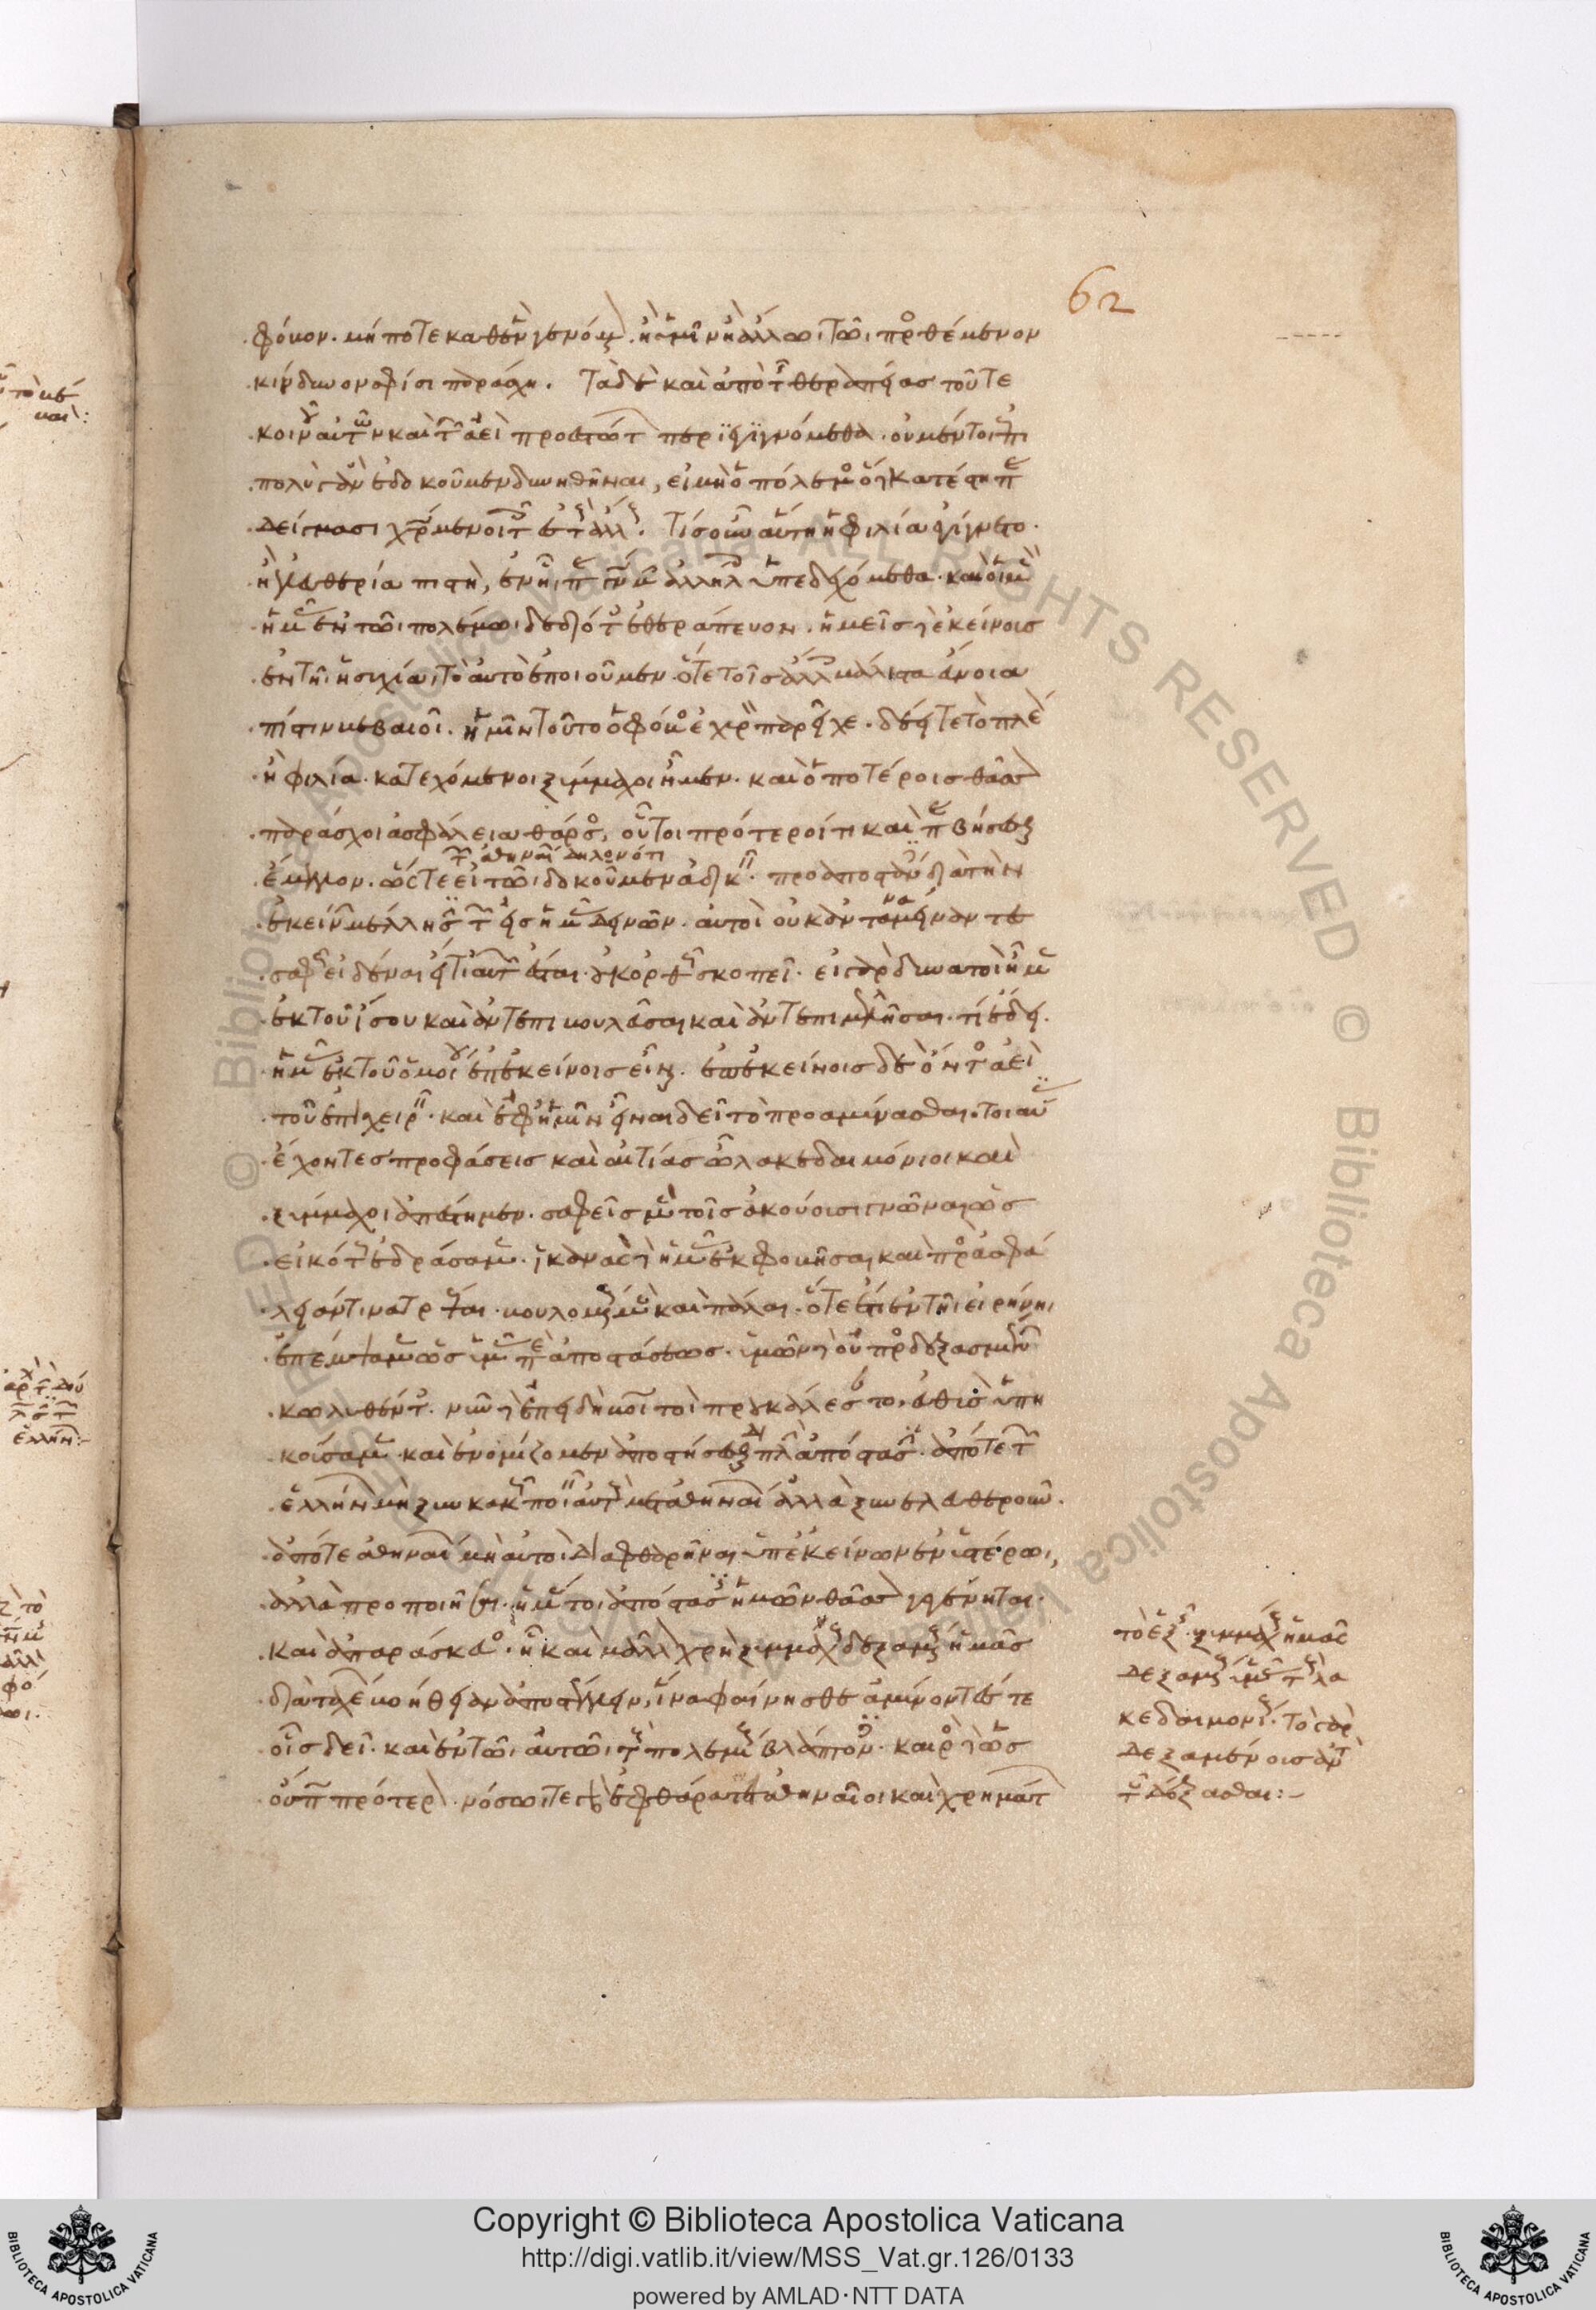 φόβον. μή ποτε καθ᾽ ἓν γενόμενον. ἢ ὑμῖν ἢ ἄλλωι τῶι προσθέμενον
κίνδυνον σφίσι παράσχη. Τὰ δὲ καὶ ἀπὸ τῆς θεραπείας τοῦ τε
κοινοῦ αὐτῶν καὶ τῶν ἀεὶ προεστώτων περιεγιγνόμεθα. οὐ μέντοι ἐπι
πολύ γ᾽ ἂν ἐδοκοῦμεν δυνηθῆναι, εἰ μὴ ὁ πόλεμος ὅδε κατέστη παρα
δείγμασι χρώμενοι τοῖς ἐς τοὺς ἄλλους. Τίς οὖν αὕτη ἡ φιλία ἐγίγνετο.
ἢ ἐλευθερία πιστὴ, ἐν ἧι παρα γνώμην ἀλλήλους ὑπεδεχόμεθα. καὶ οἱ μὲν
ἡμᾶς ἐν τῶι πολέμωι δεδιότες ἐθεράπευον. ἡμεῖς δὲ ἐκείνοις
ἐν τῆι ἡσυχίαι τὸ αὐτὸ ἐποιοῦμεν. ὅ τε τοῖς ἄλλοις μάλιστα εὔνοια
πίστιν βεβαιοῖ. ἡμῖν τοῦτο ὁ φόβος ἐχυρὸν παρεῖχε. δέει τε τὸ πλέον
ἢ φιλία. κατεχόμενοι ξύμμαχοι ἦμεν. καὶ ὁποτέροις θᾶσσον
παράσχοι ἀσφάλεια θάρσος, οὗτοι πρότεροί τι καὶ παραβήσεσθαι
τοῖς ἀθηναίοις δηλονότι
ἔμελλον. ὥστε εἴ τωι δοκοῦμεν ἀδικεῖν. προαποστάντες διὰ τὴν
ἐκείνων μέλλησιν τῶν ἐς ἡμᾶς δεινῶν. αὐτοὶ οὐκ ἀνταναμείναντες
σαφῶς εἰδέναι εἴ τι αὐτῶν ἔσται. οὐκ ὀρθῶς σκοπεῖ. εἰ γὰρ δυνατοὶ ἦμεν
ἐκ τοῦ ἴσου καὶ ἀντεπιβουλεῦσαι καὶ ἀντεπιμελλῆσαι. τί ἔδει.
ἡμᾶς ἐκ τοῦ ὁμοίου ἐπ᾽ ἐκείνοις εἶναι. ἐπ᾽ ἐκείνοις δὲ ὄντος ἀεὶ
τοῦ ἐπιχειρεῖν. καὶ ἐφ᾽ ἡμῖν εἶναι δεῖ τὸ προαμύνασθαι. Τοιαύτας
ἔχοντες προφάσεις καὶ αἰτίας ὦ λακεδαιμόνιοι καὶ
ξύμμαχοι ἀπέστημεν. σαφεῖς μὲν τοῖς ἀκούουσι γνῶναι ὡς
εἰκότως ἐδράσαμεν. ἱκανὰς δὲ ἡμᾶς ἐκφοβῆσαι καὶ πρὸς ἀσφά
λειάν τινα τρέψαι. βουλομένους μὲν καὶ πάλαι. ὅτε ἔτι ἐν τῆι εἰρήνηι
ἐπέμψαμεν ὡς ὑμᾶς περὶ ἀποστάσεως. ὑμῶν δὲ οὐ προσδεξαμένων
κωλυθέντες. νῦν δὲ ἐπειδὴ βοιωτοὶ προυκαλέσαντο. εὐθὺς ὑπη
κούσαμεν. καὶ ἐνομίζομεν ἀποστήσεσθαι διπλῆν ἀπόστασιν. ἀπό τε τῶν
ἑλλήνων μὴ ξὺν κακῶς ποιεῖν αὐτοὺς μετ᾽ ἀθηναίων ἀλλὰ ξυνελευθεροῦν.
ἀπό τε ἀθηναίων μὴ αὐτοὶ διαφθαρῆναι ὑπ᾽ ἐκείνων ἐν ὑστέρωι,
ἀλλὰ προποιῆσαι. ἡ μέντοι ἀπόστασις ἡμῶν θᾶσσον γεγένηται.
καὶ ἀπαράσκευος. ἧι καὶ μᾶλλον χρὴ ξυμμάχους δεξαμένους ἡμᾶς
διὰ ταχέων βοήθειαν ἀποστέλλειν, ἵνα φαίνησθε ἀμύνοντές τε
οἷς δεῖ. καὶ ἐν τῶι αὐτῶι τοὺς πολεμίους βλάπτοντες. καιρὸς δὲ ὡς
οὔπω πρότερον. νόσωι τε γὰρ ἐφθάραται ἀθηναῖοι καὶ χρημάτων
τὸ ἑξῆς. ξυμμάχους ἡμᾶς
δεξαμένους ὑμᾶς τοὺς λα
κεδαιμονίους. τὸ γὰρ
δεξαμένοις ἀντὶ
τοῦ δέξασθαι:-